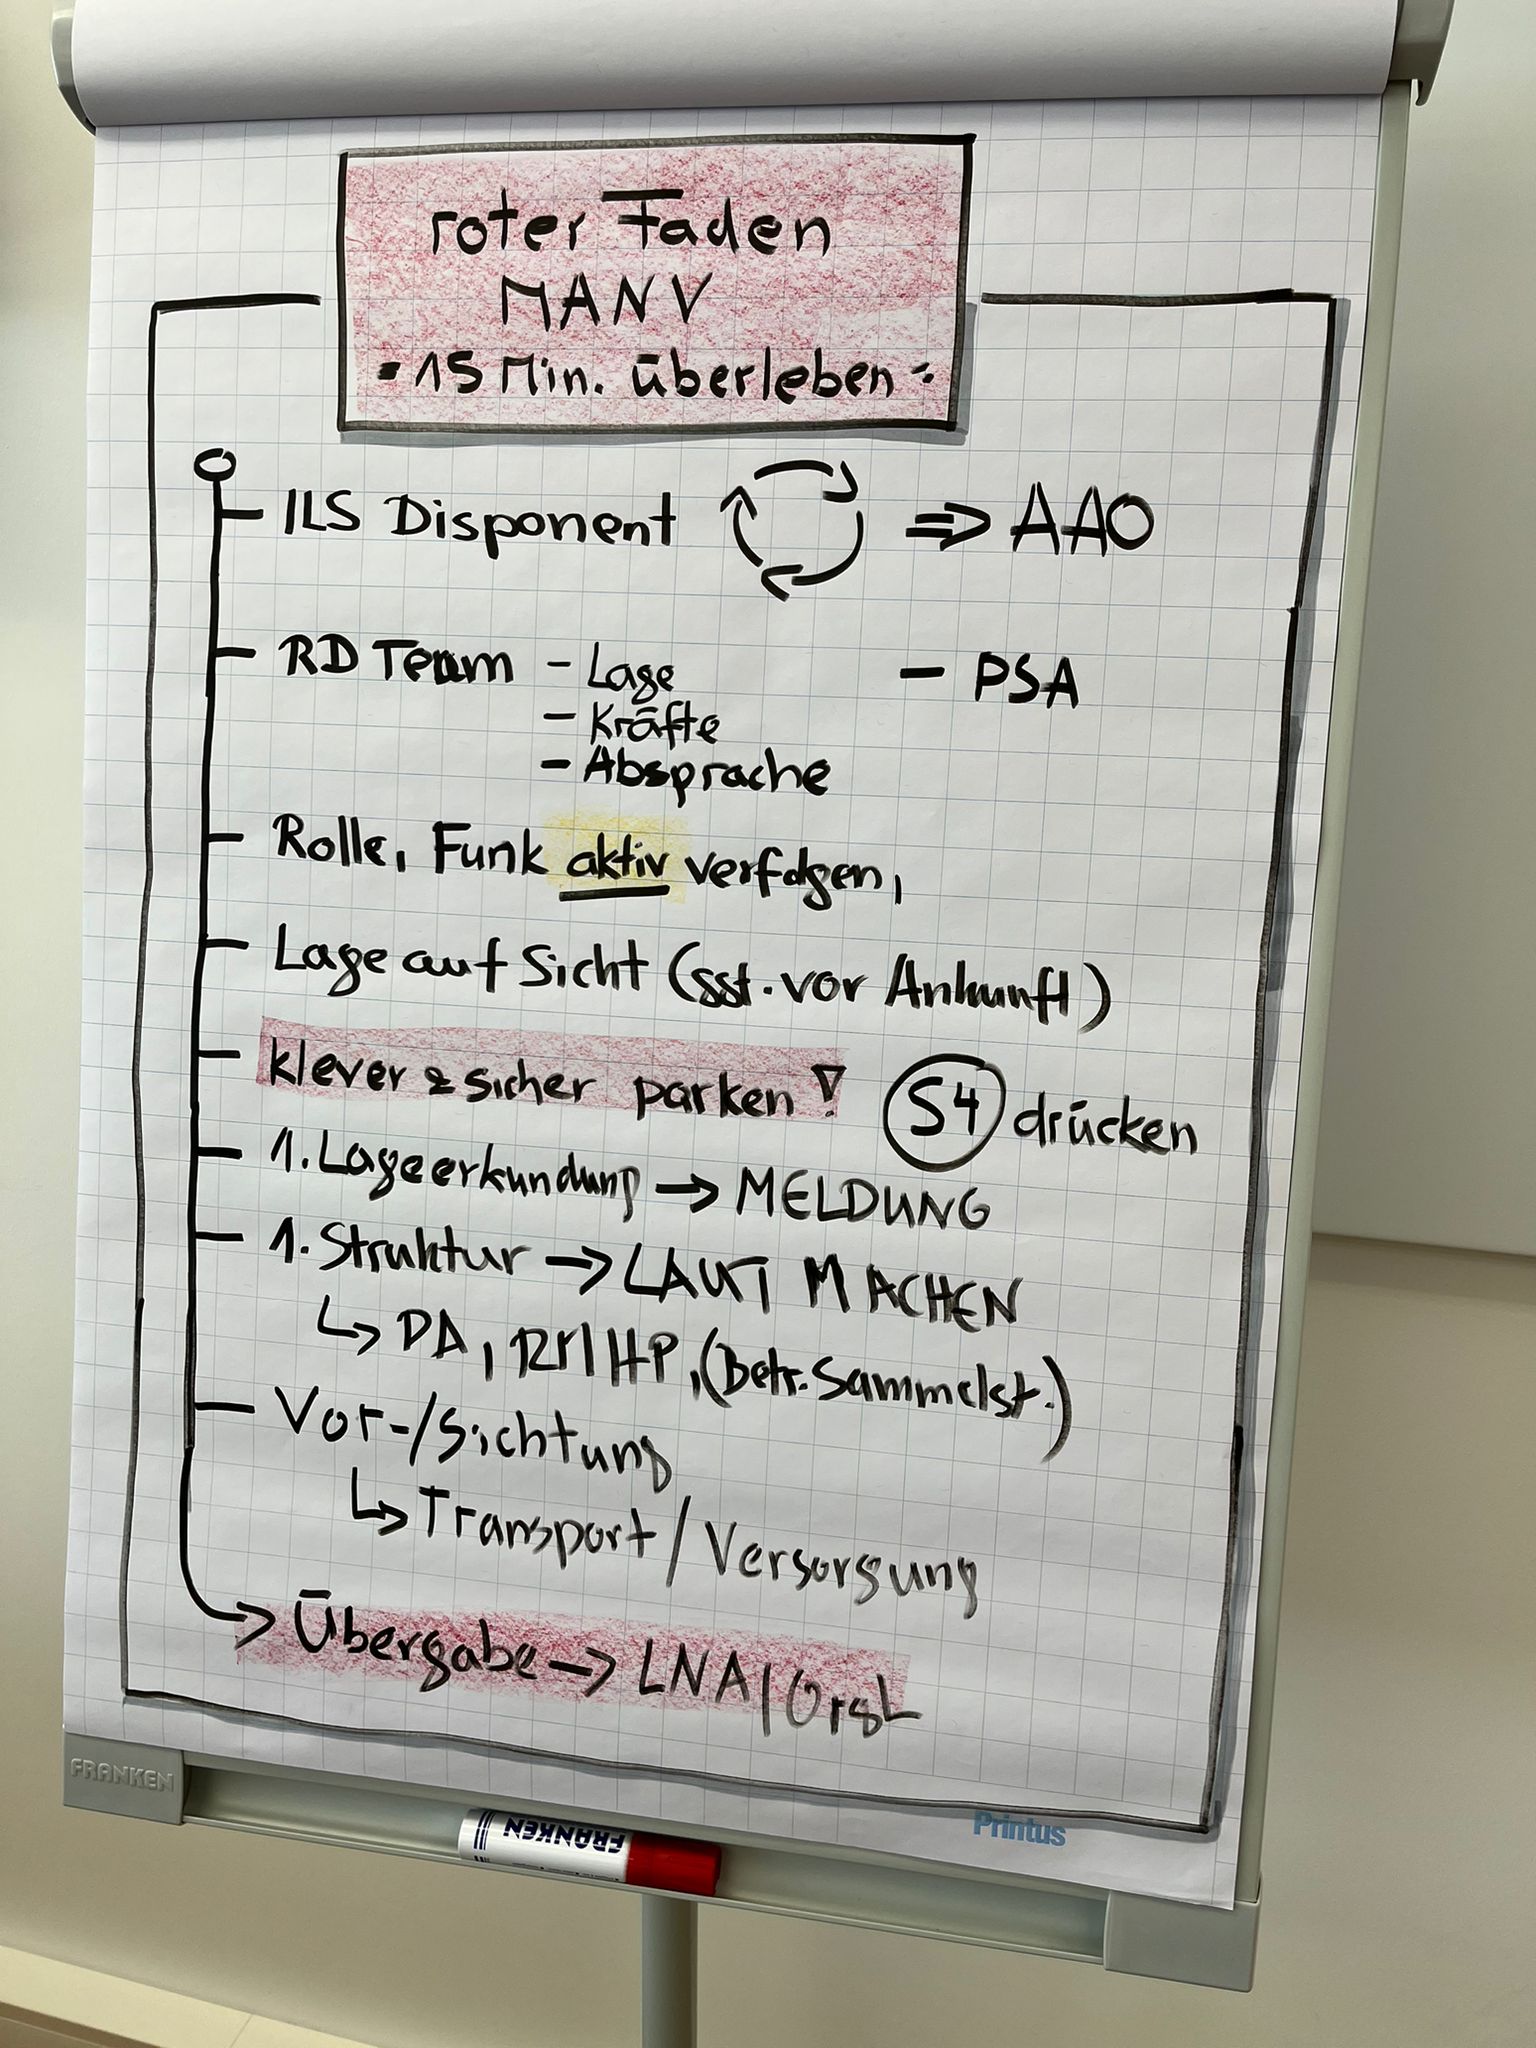 roter Faden
MANV
- 15 Min. überleben -
ILS Disponent ⇒ AAO
RD Team - Lage - PSA
- Kräfte
- Absprache
Rolle, Funk aktiv verfolgen,
Lage auf Sicht (sst. vor Ankunft)
klever & sicher parken! S4 drücken
1. Lageerkundung → MELDUNG
1. Struktur → LAUT MACHEN
↳ PA, RMHP, (Betr. Sammelst.)
Vor-/Sichtung
↳ Transport / Versorgung
→ Übergabe → LNA / OrgL
FRANKEN
FRANKEN
Printus